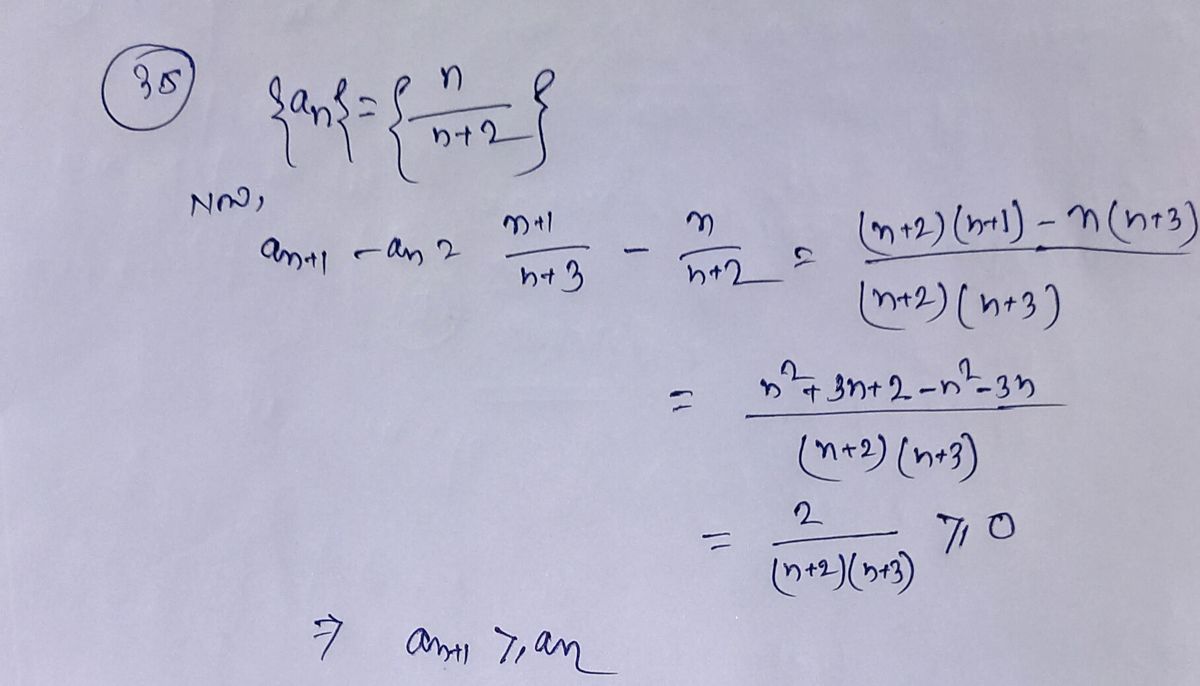 35 {an} = { n/(n+2) }
Now,
an+1 - an = (n+1)/(n+3) - n/(n+2) = ((n+2)(n+1) - n(n+3))/((n+2)(n+3))
= (n²+3n+2-n²-3n)/((n+2)(n+3))
= 2/((n+2)(n+3)) ≥ 0
⇒ an+1 ≥ an